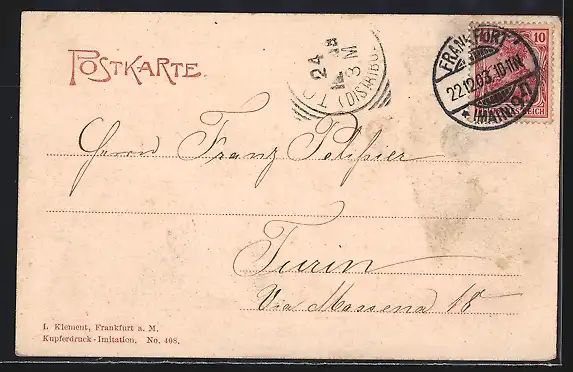 POSTKARTE.
24
3M
TO
(DISTRIBU
FRANKFURT
22.12.03. 10-11N.
* (MAIN)
10
REICH
Herrn Franz Pelissier
Turin
Via Massena 18
L. Klement, Frankfurt a. M.
Kupferdruck-Imitation. No. 408.